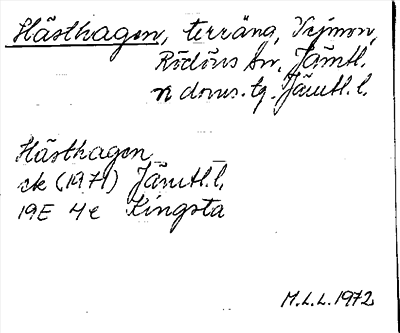 Hästhagen, terräng, Vejmon,
Rödöns sn. Jämtl.
n doms. tg. Jämtl. l.
Hästhagen
ek (1971) Jämtl. l.
19E 4e Kingsta
M.L.L. 1972